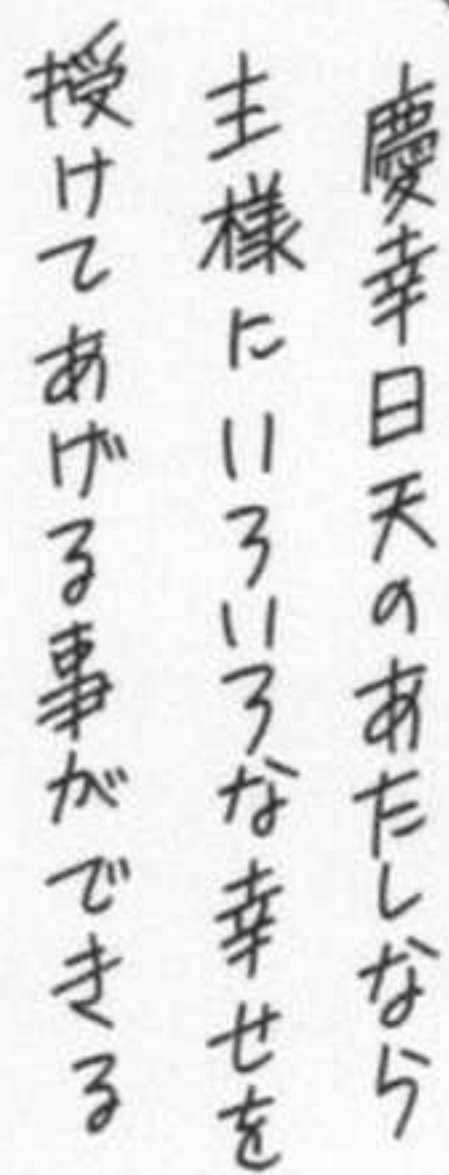 慶幸日天のあたしなら
主様にいろいろな幸せを
授けてあげる事ができる